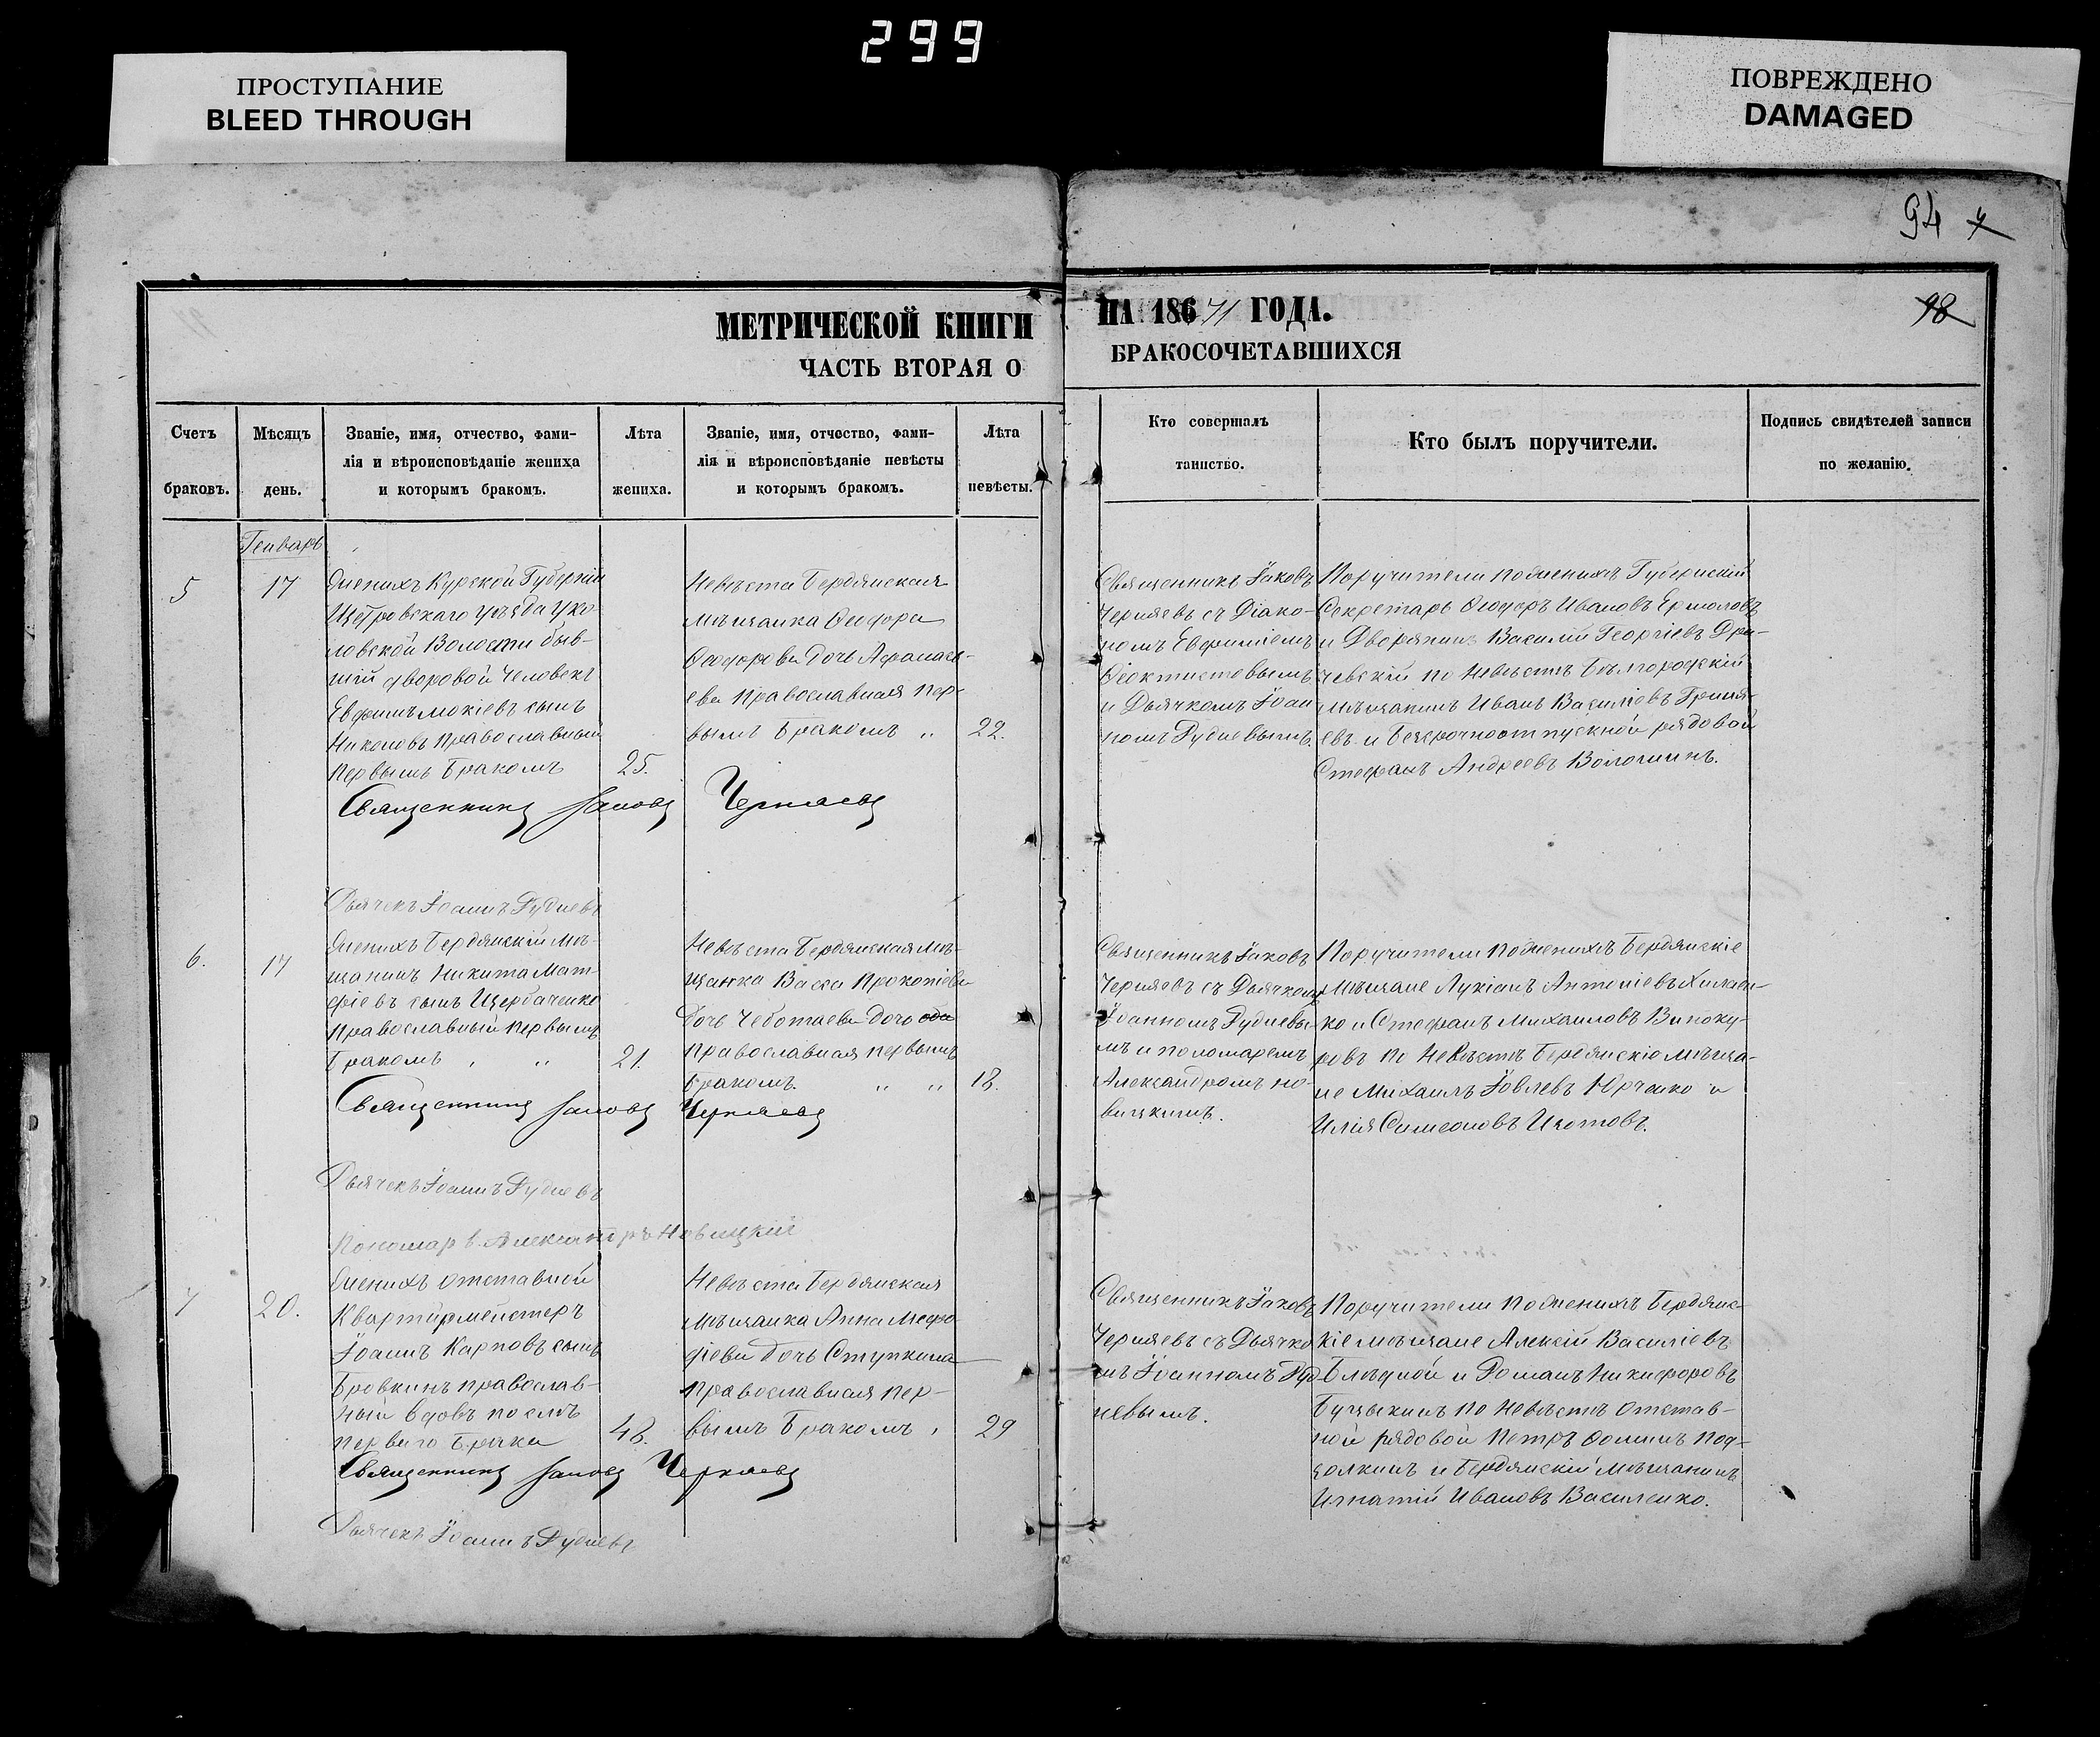 299
ПРОСТУПАНИЕ
BLEED THROUGH
ПОВРЕЖДЕНО
DAMAGED
94
98
МЕТРИЧЕСКОЙ КНИГИ
ЧАСТЬ ВТОРАЯ О
НА 18671 ГОДА.
БРАКОСОЧЕТАВШИХСЯ
Счетъ
браковъ.
Мѣсяцъ
день.
Званіе, имя, отчество, фами-
лія и вѣроисповѣданіе жениха
и которымъ бракомъ.
Лѣта
жениха.
Званіе, имя, отчество, фами-
лія и вѣроисповѣданіе невѣсты
и которымъ бракомъ.
Лѣта
невѣсты.
Кто совершалъ
таинство.
Кто былъ поручители.
Подпись свидѣтелей записи
по желанію.
Генварь
5
17
Женихъ Курской Губерніи
Щегровскаго уѣзда Уко-
ловской Волости быв-
шій дворовой человекъ
Евфимъ Мокіевъ сынъ
Никоновъ православный
первымъ бракомъ
25.
Невѣста Бердянская
мѣщанка Феодора
Феодорова дочь Афанась-
ева православная пер-
вымъ бракомъ „
22.
Священникъ Іаковъ
Черняевъ съ Діако-
номъ Евфиміемъ
Феоктистовымъ
и Дьячкомъ Іоан
номъ Рудневымъ.
Поручители по женихѣ Губернскій
Секретарь Феодоръ Ивановъ Ермоловъ
и Дворянинъ Василій Георгіевъ Дра-
чевскій по невѣстѣ Бѣлгородскій
мѣщанинъ Иванъ Василіевъ Гриня-
евъ и безсрочноотпускной рядовой
Стефанъ Андреевъ Волошинъ.
Священникъ Іаковъ Черняевъ
Дьячекъ Іоаннъ Рудневъ
6.
17
Женихъ Бердянскій мѣ-
щанинъ Никита Мат-
фіевъ сынъ Щербаченко
православный первымъ
бракомъ , „
21.
Невѣста Бердянская мѣ-
щанка Васса Прокопіева
дочь Чеботаева дочь
православная первымъ
бракомъ. „ „
18.
Священникъ Іаковъ
Черняевъ съ Дьячкомъ
Іоанномъ Рудневы-
мъ и пономаремъ
Александромъ Но-
вицкимъ.
Поручители по женихѣ Бердянскіе
мѣщане Лукіанъ Антоніевъ
ко и Стефанъ Михаиловъ Виноку-
ровъ по невѣстѣ Бердянскіе мѣща-
не Михаилъ Іовлевъ Юрченко и
Илія Симеоновъ Изотовъ.
Священникъ Іаковъ Черняевъ
Дьячекъ Іоаннъ Рудневъ
Пономарь Александръ Новицкій
7
20.
Женихъ отставной
Квартирмейстеръ
Іоаннъ Карповъ сынъ
Бровкинъ православ-
ный вдовъ послѣ
перваго брака
48.
Невѣста Бердянская
мѣщанка Анна Мефо
діева дочь Ступкина
православная пер-
вымъ бракомъ ,
29
Священникъ Іаковъ
Черняевъ съ Дьячко
мъ Іоанномъ Руд
невымъ.
Поручители по женихѣ Бердянс-
кіе мѣщане Алексій Василіевъ
Блѣдной и Романъ Никифоровъ
по невѣстѣ отстав-
ной рядовой Петръ Фоминъ Под-
золкинъ и Бердянскій мѣщанинъ
Игнатій Ивановъ Василенко.
Священникъ Іаковъ Черняевъ
Дьячекъ Іоаннъ Рудневъ